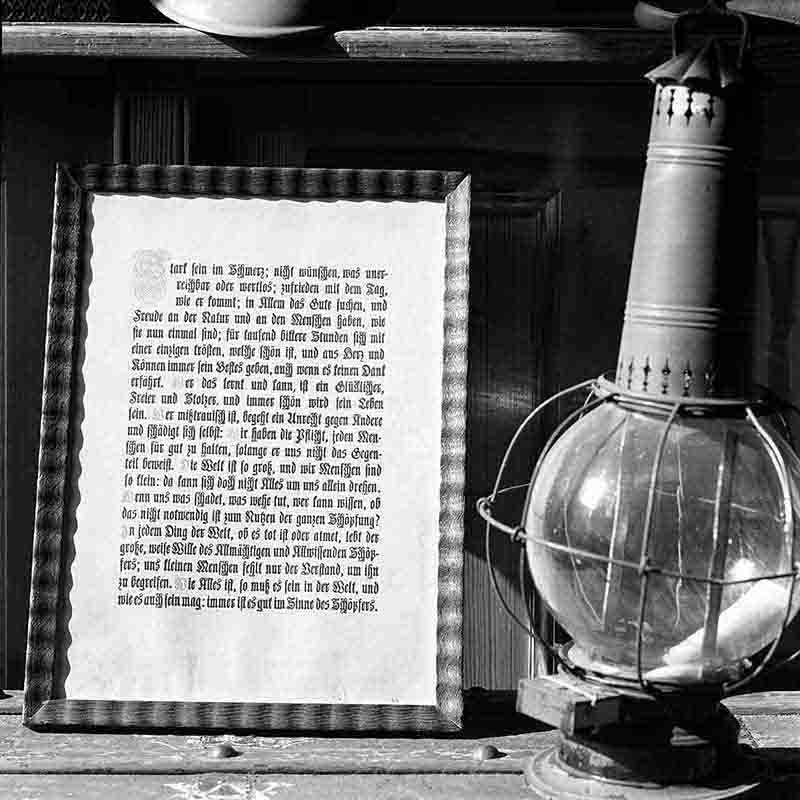 Stark sein im Schmerz; nicht wünschen, was uner-
reichbar oder wertlos; zufrieden mit dem Tag,
wie er kommt; in Allem das Gute suchen, und
Freude an der Natur und an den Menschen haben, wie
sie nun einmal sind; für tausend bittere Stunden sich mit
einer einzigen trösten, welche schön ist, und aus Herz und
Können immer sein Bestes geben, auch wenn es keinen Dank
erfährt. Wer das lernt und kann, ist ein Glücklicher,
Freier und Stolzer, und immer schön wird sein Leben
sein. Wer mißtrauisch ist, begeht ein Unrecht gegen Andere
und schädigt sich selbst: Wir haben die Pflicht, jeden Men-
schen für gut zu halten, solange er uns nicht das Gegen-
teil beweist. Die Welt ist so groß, und wir Menschen sind
so klein: da kann sich doch nicht Alles um uns allein drehen.
Wenn uns was schadet, was wehe tut, wer kann wissen, ob
das nicht notwendig ist zum Nutzen der ganzen Schöpfung?
In jedem Ding der Welt, ob es tot ist oder atmet, lebt der
große, weise Wille des Allmächtigen und Allwissenden Schöp-
fers; uns kleinen Menschen fehlt nur der Verstand, um ihn
zu begreifen. Wie Alles ist, so muß es sein in der Welt, und
wie es auch sein mag: immer ist es gut im Sinne des Schöpfers.